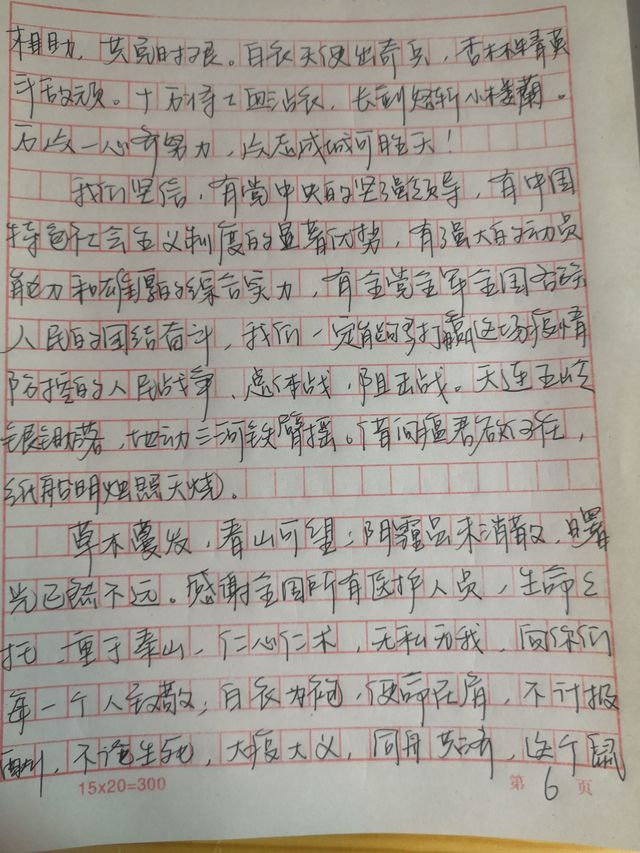 相助，共克时艰。白衣天使出奇兵，杏林精英
斗敌顽。十万将士血沾衣，长剑怒斩小楼蘭。
万众一心齐努力，众志成城可胜天！
我们坚信，有党中央的坚强领导，有中国
特色社会主义制度的显著优势，有强大的动员
能力和雄厚的综合实力，有全党全军全国各族
人民的团结奋斗，我们一定能够打赢这场疫情
防控的人民战争、总体战、阻击战。天连五岭
银锄落，地动三河铁臂摇。借问瘟君欲何往，
纸船明烛照天烧。
草木蔓发，春山可望；阴霾虽未消散，曙
光已然不远。感谢全国所有医护人员，生命之
托，重于泰山，仁心仁术，无私为我，向你们
每一个人致敬；白衣为袍，使命在肩，不计报
酬，不论生死，大疫大义，同舟共济，这个鼠
15x20=300
第 6 页